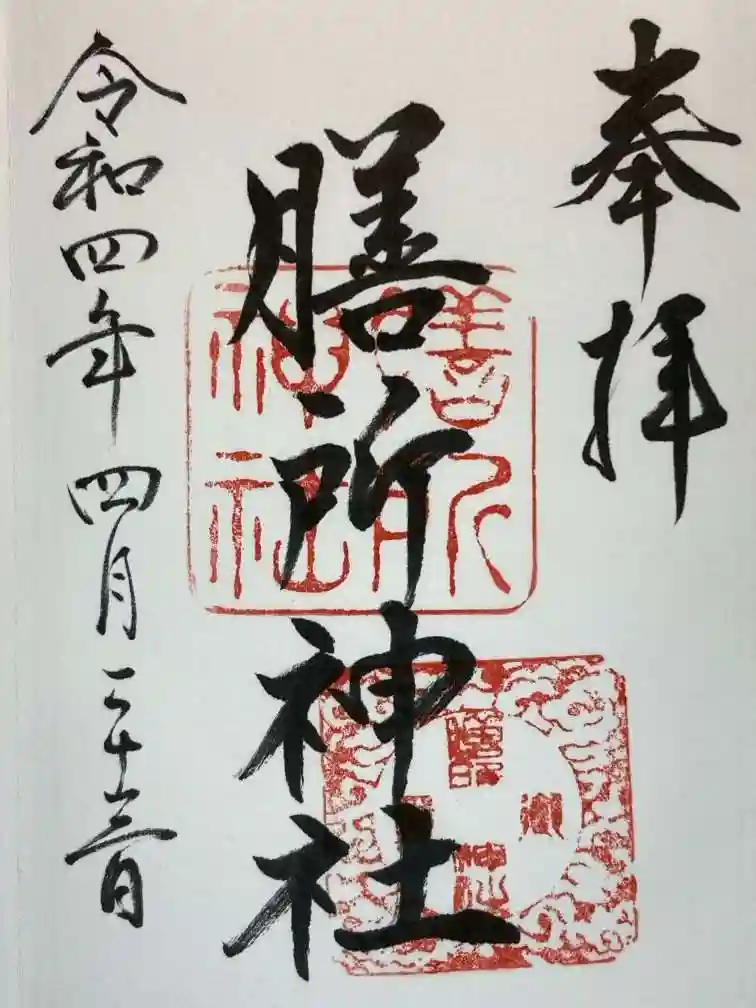 奉拝
膳所神社
令和四年四月二十三日
膳所神社